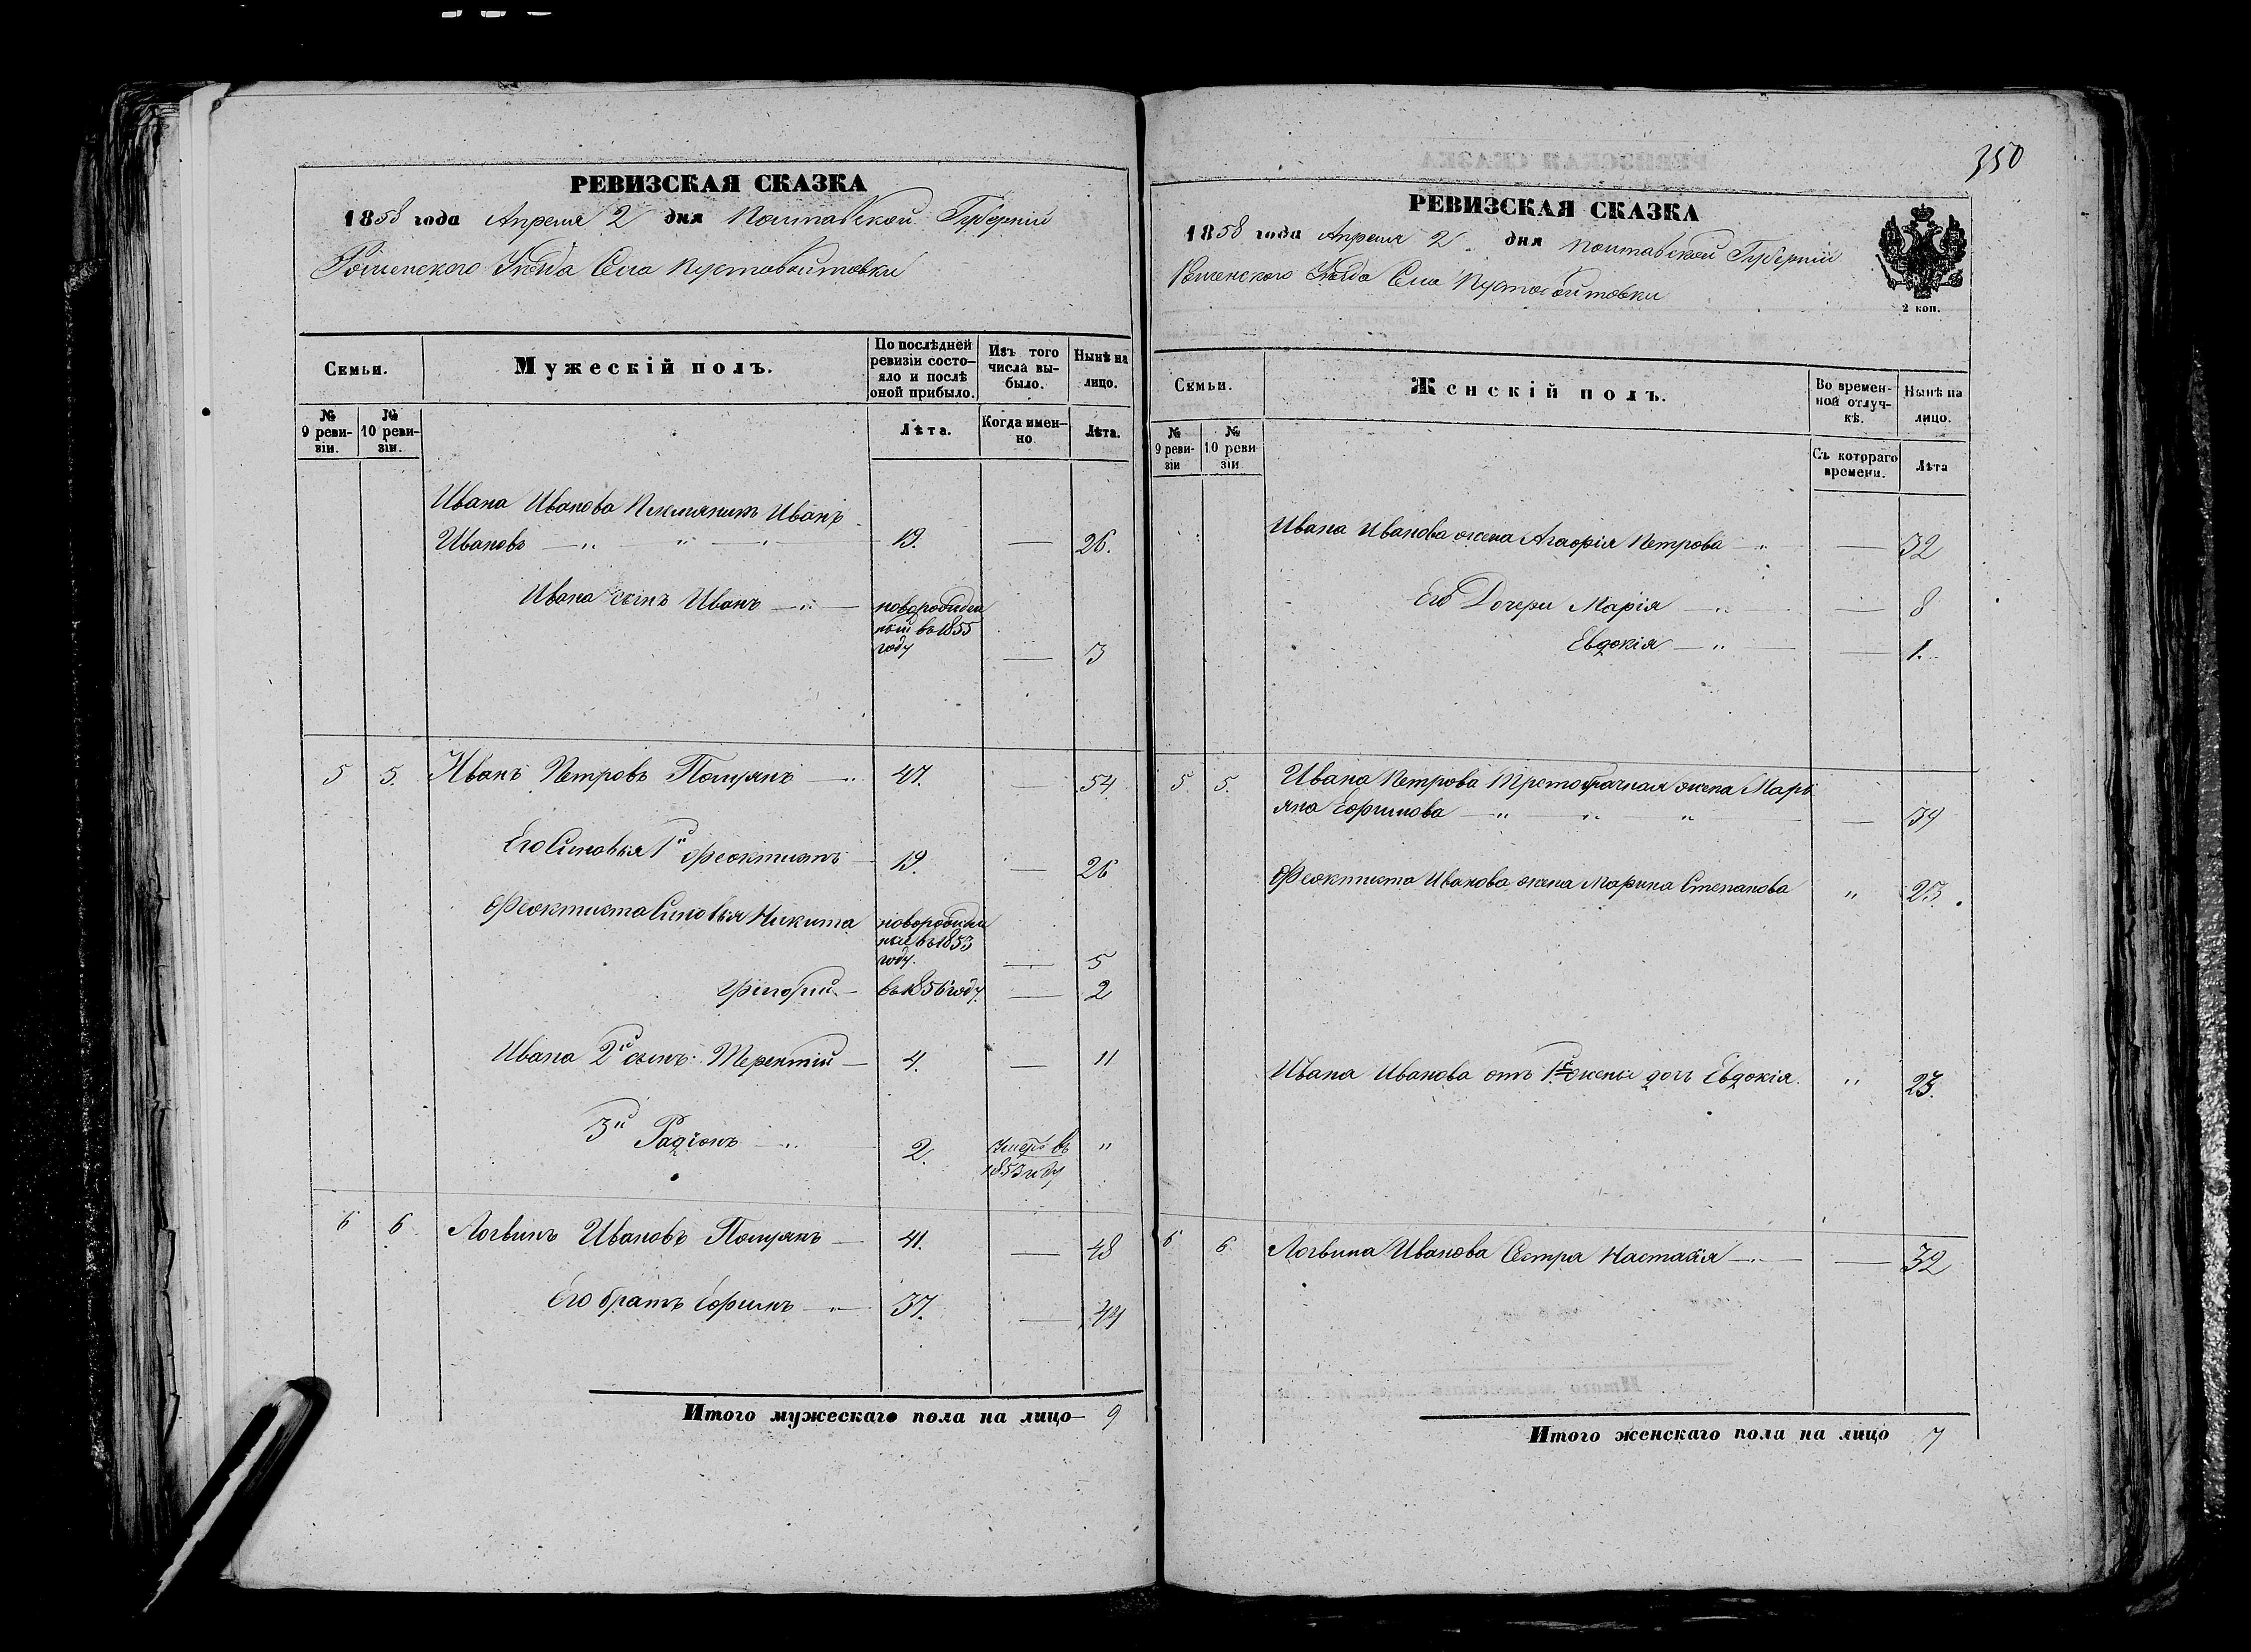 350
РЕВИЗСКАЯ СКАЗКА
1858 года Апреля 2 дня Полтавской Губерніи
Роменского Уезда Села Пустовойтовки
Семьи.
Мужескій полъ.
По послѣдней ревизіи состо-
яло и послѣ
оной прибыло.
Изъ того
числа вы-
было.
Нынѣ на
лицо.
№
9 реви-
зіи.
№
10 реви-
зіи.
Лѣта.
Когда имен-
но
Лѣта.
Ивана Иванова Племяникъ Иванъ
Ивановъ — 19. — 26.
Ивана сынъ Иванъ — новорожден
ный въ 1855
году — 3
5 5. Иванъ Петровъ Полулях — 47. — 54.
Его Синовья 1й Феоктистъ — 19. — 26
Феоктиста Синовья Никита новорожден
ные въ 1853
году. — 5
Григорій — въ 1856 году. — 2
Ивана 2й сынъ Терентій — 4. — 11
3й Радіонъ — 2. Умеръ въ
1853 году "
6 6. Логвинъ Ивановъ — 41. — 48
Его братъ Ефимъ — 37. — 44
Итого мужескаго пола на лицо — 9
РЕВИЗСКАЯ СКАЗКА
1858 года Апреля 2. дня Полтавской Губерніи
Роменского Уезда Села Пустовойтовки
2 коп.
Семьи.
Женскій полъ.
Во времен-
ной отлуч-
кѣ.
Нынѣ на
лицо.
№
9 реви-
зіи
№
10 реви
зіи
Съ котораго
времени.
Лѣта
Ивана Иванова жена Агафія Петрова — — 32
Его Дочери Марія — — 8
Евдокія — — 1.
5. 5. Ивана Петрова Третобрачная жена Марь
яна Ефимова — — 34
Феоктиста Иванова жена Марина Степанова " 23.
Ивана Иванова отъ 1й жены доч Евдокія. " 23.
6 6 Логвина Иванова Сестра Настасія — — 32
Итого женскаго пола на лицо 7